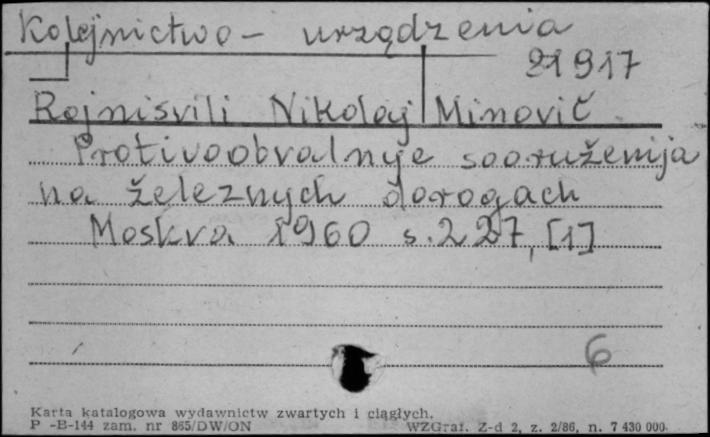 Kolejnictwo – urządzenia
21917
Rojnisvili Nikolaj Minovič
Protivoobvalnye sooruženija
na železnych dorogach
Moskva 1960 s. 227, [1]
6
Karta katalogowa wydawnictw zwartych i ciągłych.
P -B-144 zam. nr 865/DW/ON WZGraf. Z-d 2, z. 2/86, n. 7 430 000.